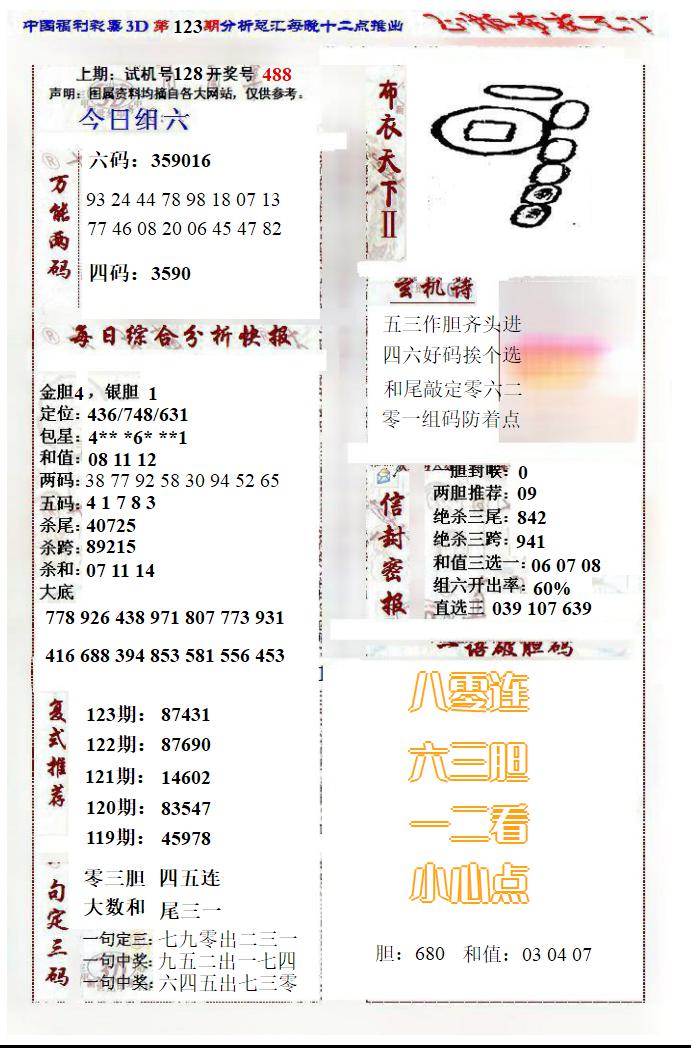 中国福利彩票3D 第123期分析总汇每晚十二点推出
上期：试机号128开奖号 488
声明：图属资料均摘自各大网站，仅供参考。
今日组六
万能两码
六码：359016
93 24 44 78 98 18 07 13
77 46 08 20 06 45 47 82
四码：3590
每日综合分析快报
金胆4，银胆 1
定位：436/748/631
包星：4** *6* **1
和值：08 11 12
两码：38 77 92 58 30 94 52 65
五码：4 1 7 8 3
杀尾：40725
杀跨：89215
杀和：07 11 14
大底
778 926 438 971 807 773 931
416 688 394 853 581 556 453
复式推荐
123期： 87431
122期： 87690
121期： 14602
120期： 83547
119期： 45978
一句定三码
零三胆 四五连
大数和 尾三一
一句定三：七九零出二三一
一句中奖：九五二出一七四
一句中奖：六四五出七三零
布衣天下II
玄机诗
五三作胆齐头进
四六好码挨个选
和尾敲定零六二
零一组码防着点
信封密报
一胆封喉：0
两胆推荐：09
绝杀三尾：842
绝杀三跨：941
和值三选一：06 07 08
组六开出率：60%
直选三 039 107 639
语破胆码
八零连
六三胆
一二看
小心点
胆：680 和值：03 04 07